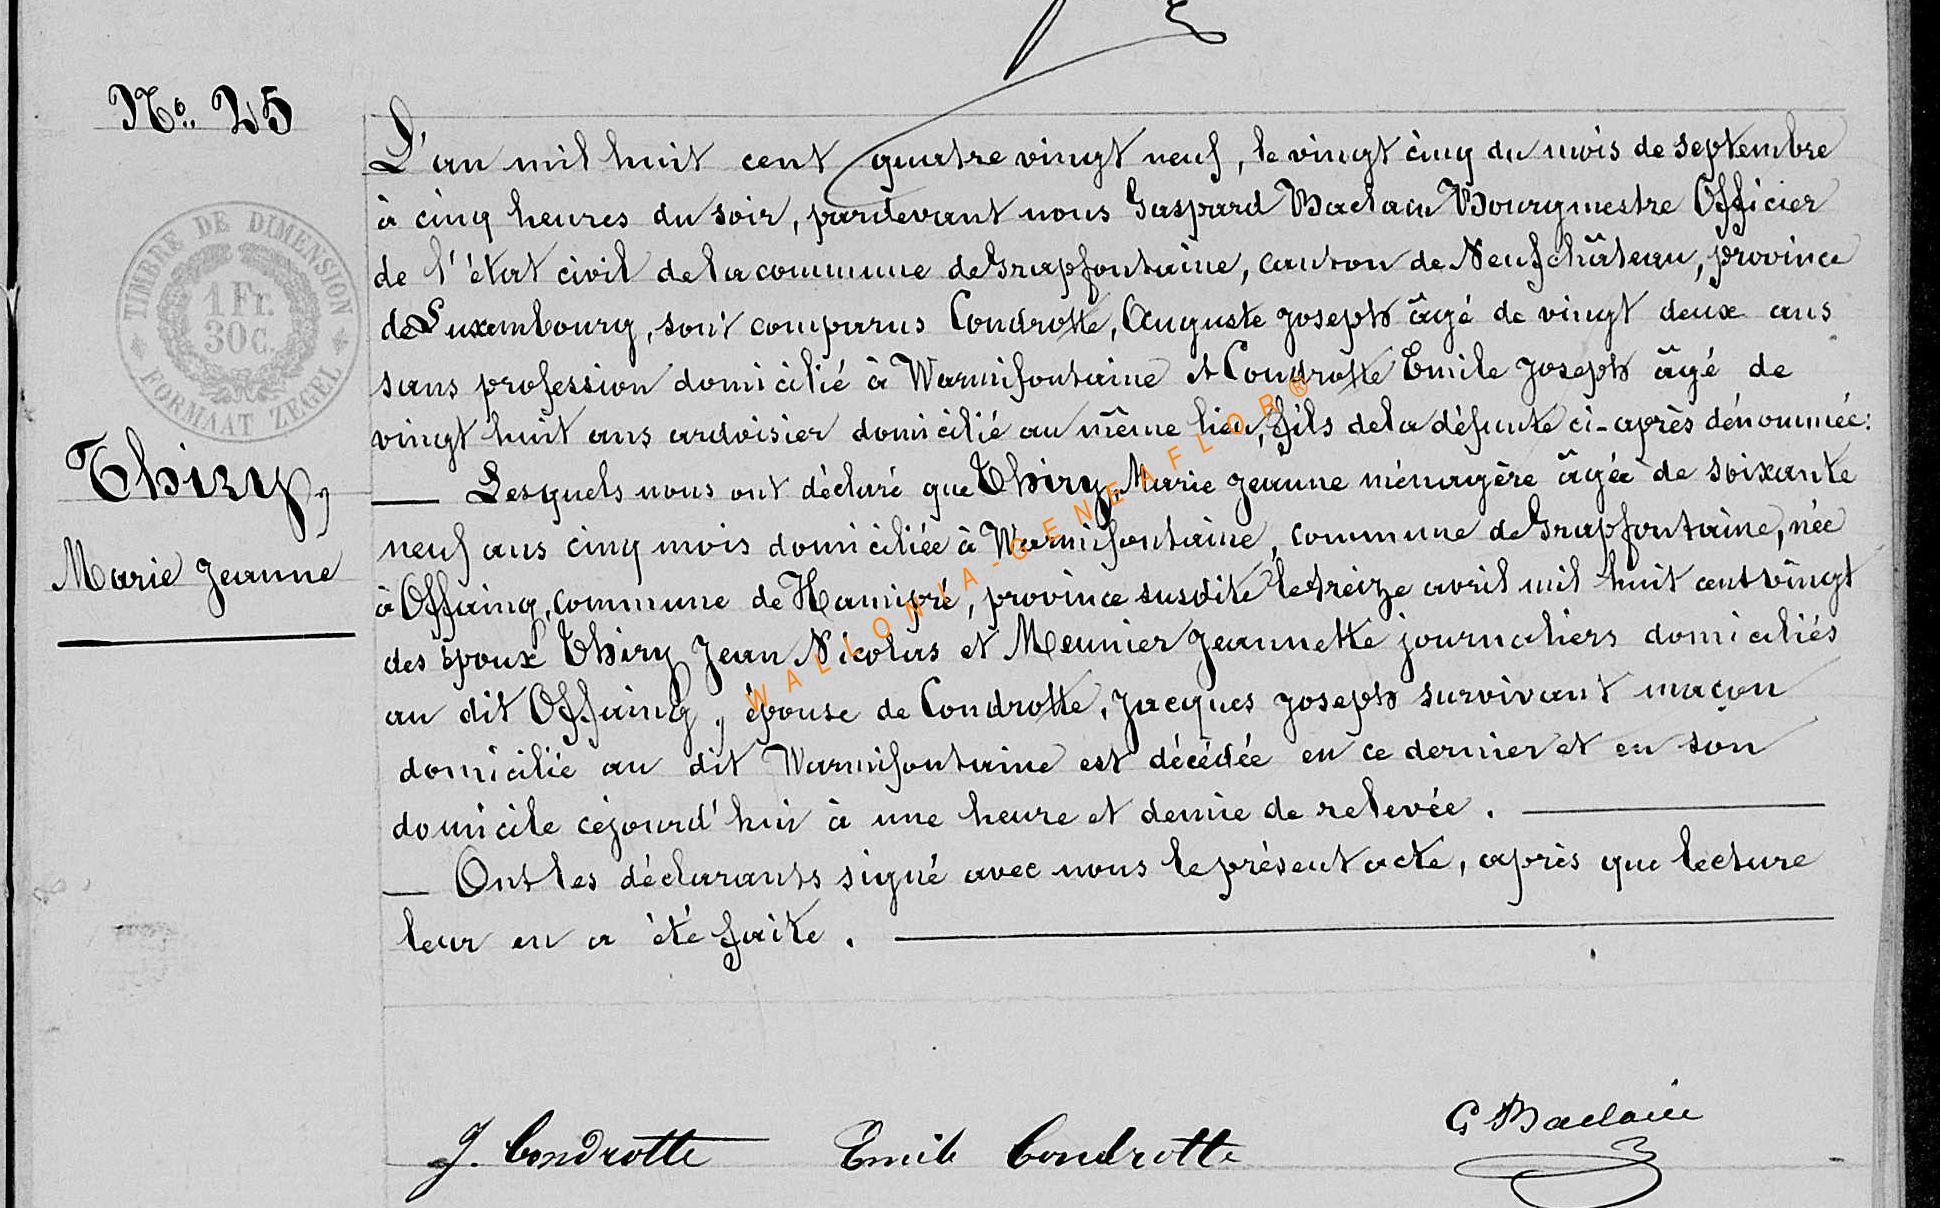 N° 25
L'an mil huit cent quatre vingt neuf, le vingt cinq du mois de septembre
à cinq heures du soir, pardevant nous Gaspard Baclain Bourgmestre Officier
de l'état civil de la commune de Grapfontaine, canton de Neufchâteau, province
de Luxembourg, sont comparus Condrotte, Auguste Joseph âgé de vingt deux ans
sans profession domicilié à Warmifontaine et Condrotte Emile Joseph âgé de
vingt huit ans ardoisier domicilié au même lieu, fils de la défunte ci-après dénommée:
Lesquels nous ont déclaré que Thiry, Marie Jeanne ménagère âgée de soixante
neuf ans cinq mois domiciliée à Warmifontaine, commune de Grapfontaine, née
à Offaing, commune de Hamipré, province susdite le treize avril mil huit cent vingt
des époux Thiry Jean Nicolas et Meunier Jeannette journaliers domiciliés
au dit Offaing, épouse de Condrotte, Jacques Joseph survivant maçon
domicilié au dit Warmifontaine est décédée en ce dernier et en son
domicile cejourd'hui à une heure et demie de relevée.
Ont les déclarants signé avec nous le présent acte, après que lecture
leur en a été faite.
Thiry,
Marie Jeanne
TIMBRE DE DIMENSION
1 Fr.
30 C.
FORMAAT ZEGEL
WALLONIA-GENEAFLOR®
J. Condrotte Emile Condrotte G Baclain